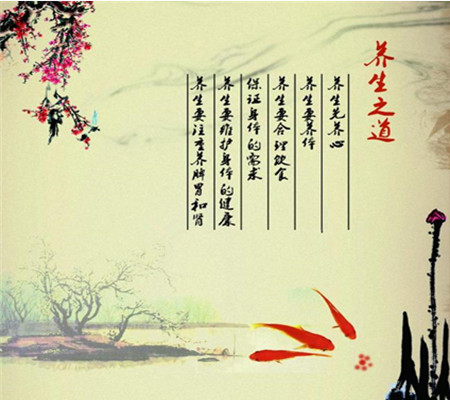 养生之道
养生先养心
养生要养体
养生要合理饮食
保证身体的需求
养生要维护身体的健康
养生要注重养脾胃和肾